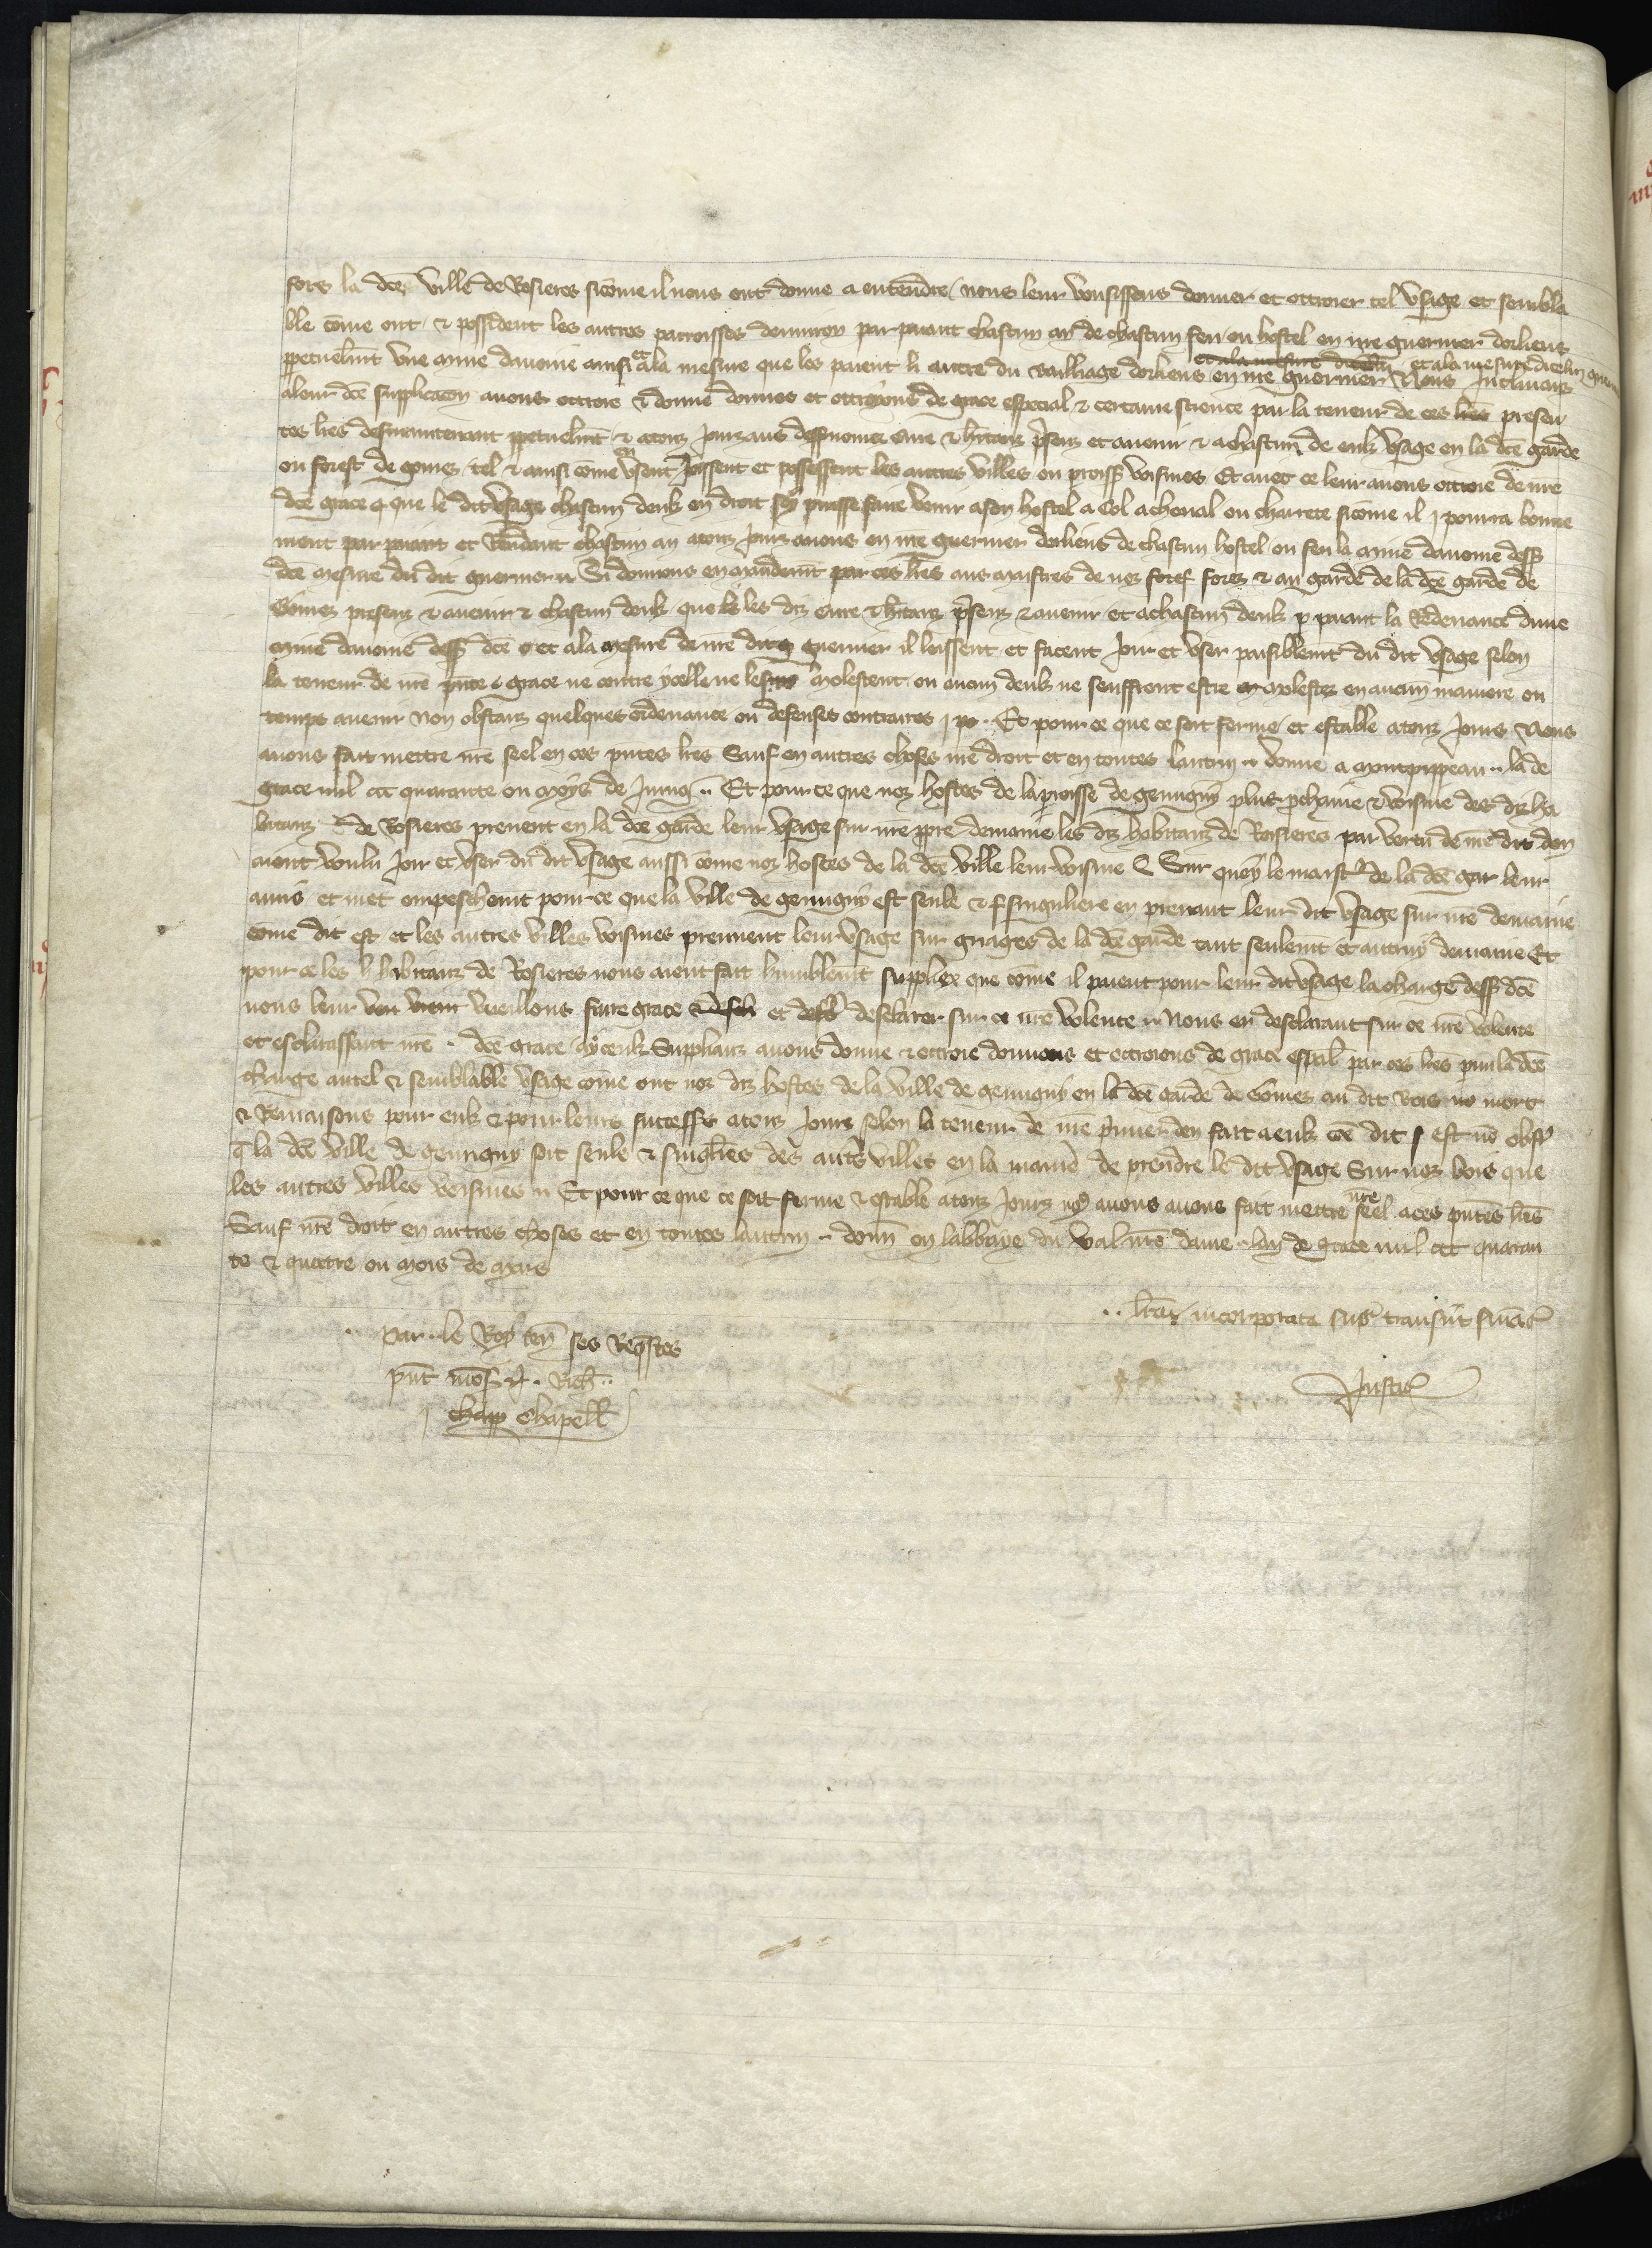 fors la dce ville de Rosieres sicōme il nous ont donne a entendre nous leur vousissons donner et ottroier tel vsage et sembla
ble cōme ont & possident les autres parroisses denuiron par paiant chascun an de chascun feu ou hostel en nre guernier dorliens
ppetuelmt vne mine dauoine ainsi & ala mesure que les paient li autre du bailliage dorliens en nre guernier et ala mesure dicelui guern Nous Inclinans
aleur dce supplicacon auons ottroie & donne donnos et ottroyons de grace especial & certaine science par la teneur de ces lres presen
tes lres desmaintenant ppetuelmt & atouz jourz aus dessnomez cure & hitanz psenz et auenir & a chascun de eulx vsage en la dce garde
ou forest de gomez tel & ainsi cōme en vsent joissent et possessent les autres villes ou proiss voisines Et auec ce leur auons ottroie de nre
dce grace que le dit vsage chascun deulx en droit soy puisse faire venir a son hostel a Col acheual ou charrete sicōme il pourra bonne
ment par paiant et Rendant chascun an atouz jourz auons en nre guernier dorliens de chascun hostel ou feu la mine dauoine dess
dce mesure du dit guernier Si donnons en mandemt par ces lres aus maistres de noz foref forez & au garde de la dce garde de
Gomez presenz & auenir & chascun deulx que les diz cure & hitanz psenz & auenir et achascun deulx p paiant la Redeuance dune
mine dauoine dess dce et ala mesure de nre dit guernier il laissent et facent joir et vser paisiblemt du dit vsage selon
la teneur de nre pnte grace ne contre ycelle ne les molestent ou aucun deulx ne souffrent estre molestez en aucun maniere ou
temps auenir Non obstanz quelques ordenance ou defenses contraires Et pour ce que ce soit ferme et estable atouz jours Nous
auons fait mettre nre seel en ces pntes lres Sauf en autres choses nre droit et en toutes lautrui donne a montpipeau lā de
grace mil ccc quarante ou moys de Juing Et pour ce que noz hostes de la proisse de genugny plus pchaine & voisine des diz ha
bitanz de Rosieres prenent en la dce garde leur vsage sur nre ppre demaine les diz habitanz de Rosieres par vertu de nre dit don
aient voulu joir et vser du dit vsage aussi cōme noz hostes de la dce ville leur voisine Sur quoy le maistre de la dce gar leur
auris et met empeschemt pour ce que la ville de genugny est seule & singuliere en prenant leur dit vsage sur nre demaine
cōme dit est et les autres villes voisines prennent leur vsage sur gruages de la dce garde tant seulemt et autruy demaine Et
pour ce les habitanz de Rosieres nous aient fait humblemt supplier que cōme il paient pour leur dit vsage la charge dess dce
nous leur vueillons faire grace et desclarer sur ce nre volente Nous en desclarant sur ce nre volente
et esclarissant nre dce grace aycculx Supplianz auons donne & ottroie donnons et ottroions de grace espal par ces lres pmi la dce
charge autel & semblable vsage cōme ont noz diz hostes de la ville de genugny en la dce garde de Gomez au dit bois mort
& Remaisons pour eulx & pour leurs successrs atouz jours selon la teneur de nre pmier don fait a eulx cōe dit est nō obst
q la dce ville de genugny soit seule & singliere des autres villes en la manie de prendre le dit vsage Sur noz bois que
les autres villes voisines Et pour ce que ce soit ferme & estable atouz jours nō auons auons fait mettre nre seel aces pntes lres
Sauf nre droit en autres choses et en toutes lautrui donn en labbaye du val nre dame lan de grace mil ccc quaran
te & quatre ou mois de mars
lra incorporata sup transiit
par le Roy en ses Requestes
pnt mōs Rich
Chapell
Justic